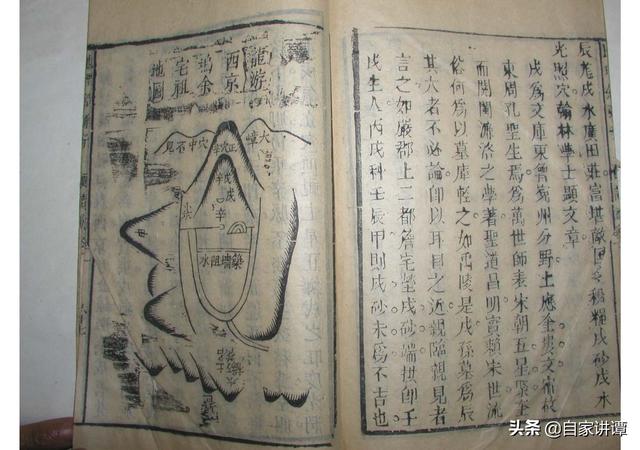 戌水廣田莊富堪敵国積糧戌砂戌水
光照穴翰林學士顯文章
戌為文庫東魯兗州分野上應奎文故
東周孔聖生焉為萬世師表宋朝五星聚奎
而關閩濂洛之學著聖道昌明實賴宋世流
俗何為以墓庫輕之如禹陵是戌孫墓為辰
其大者不必論師以耳目之近親臨親見者
言之如嚴郡上二都詹宅塋戌砂端拱師千
戌生人丙戌科壬辰甲則戌砂未為不吉也
龍游
西京
余
宅祖
地圖
大嶂
穴中不見
戌
辛
築壩阻水
头条 @自家讲谭